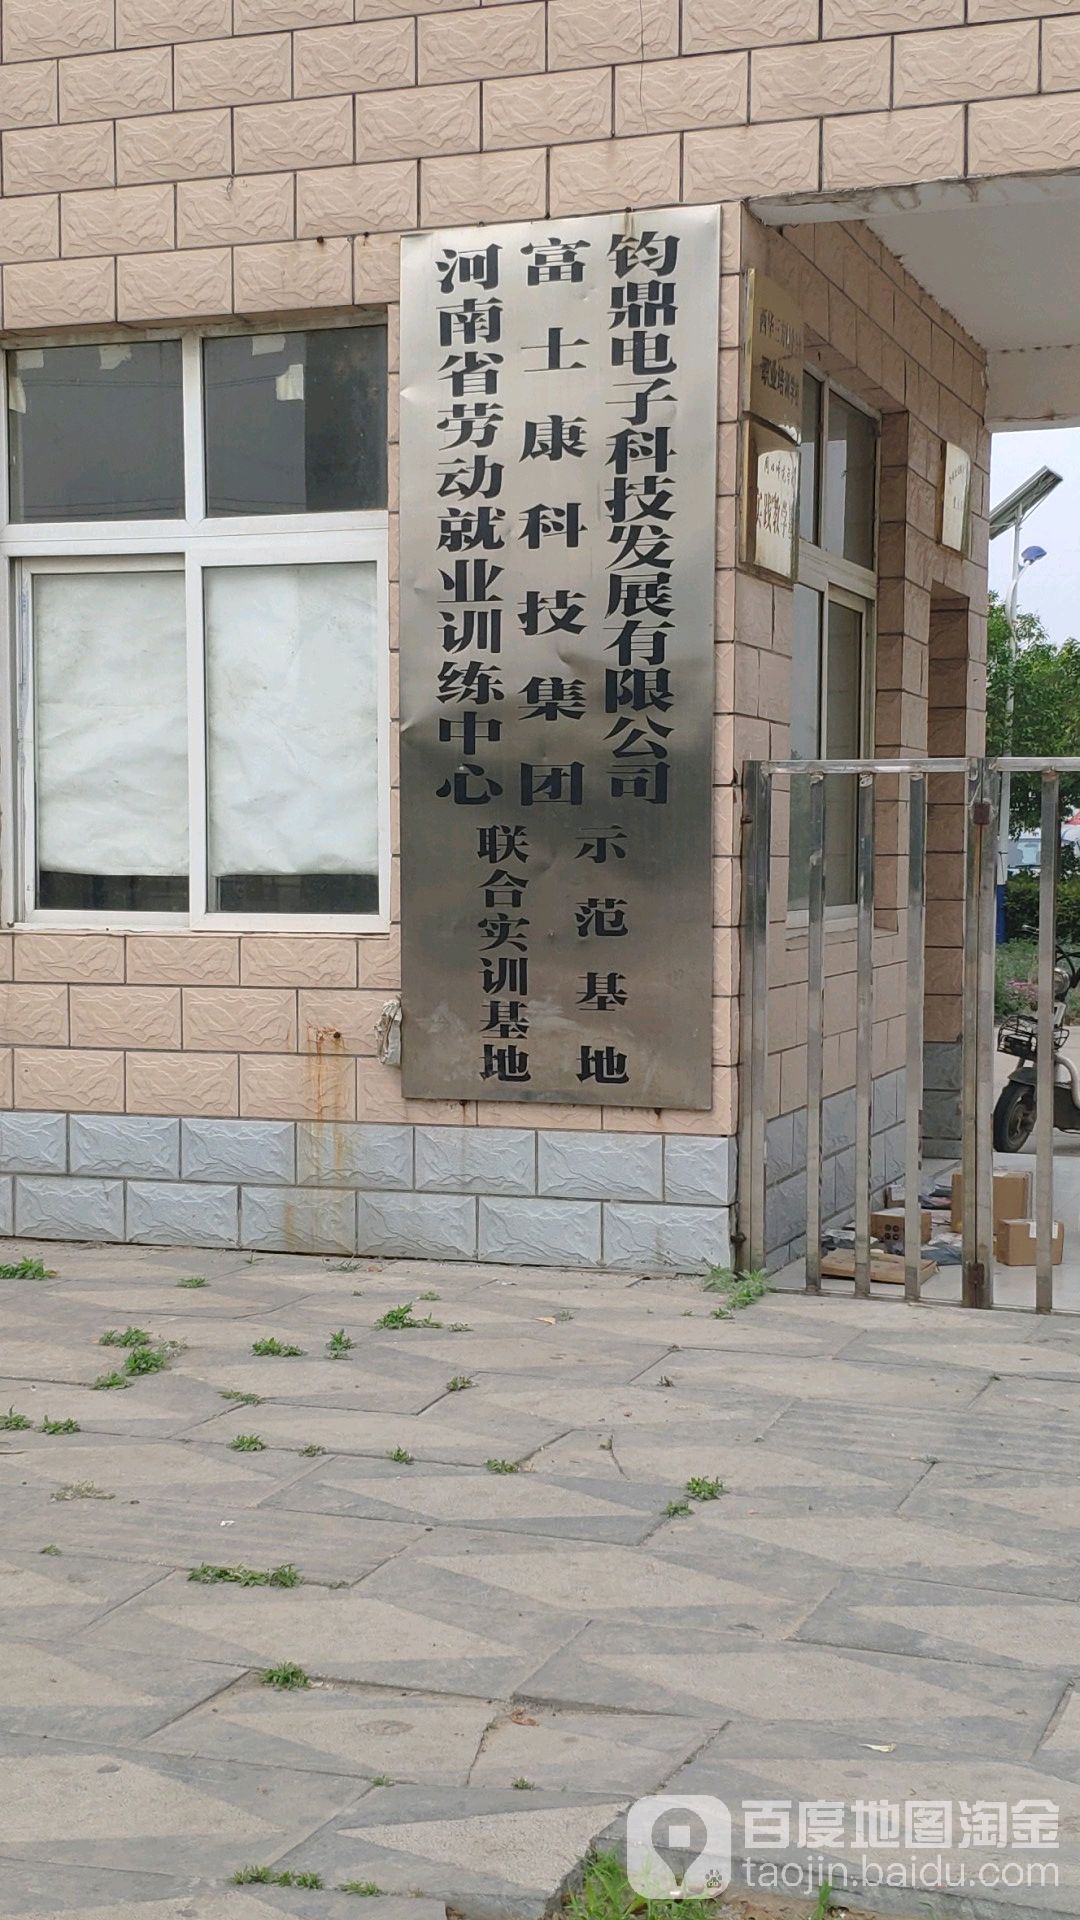 钧鼎电子科技发展有限公司
富士康科技集团
河南省劳动就业训练中心
示范基地
联合实训基地
职业培训学校
实践教学基
百度地图淘金
taojin.baidu.com